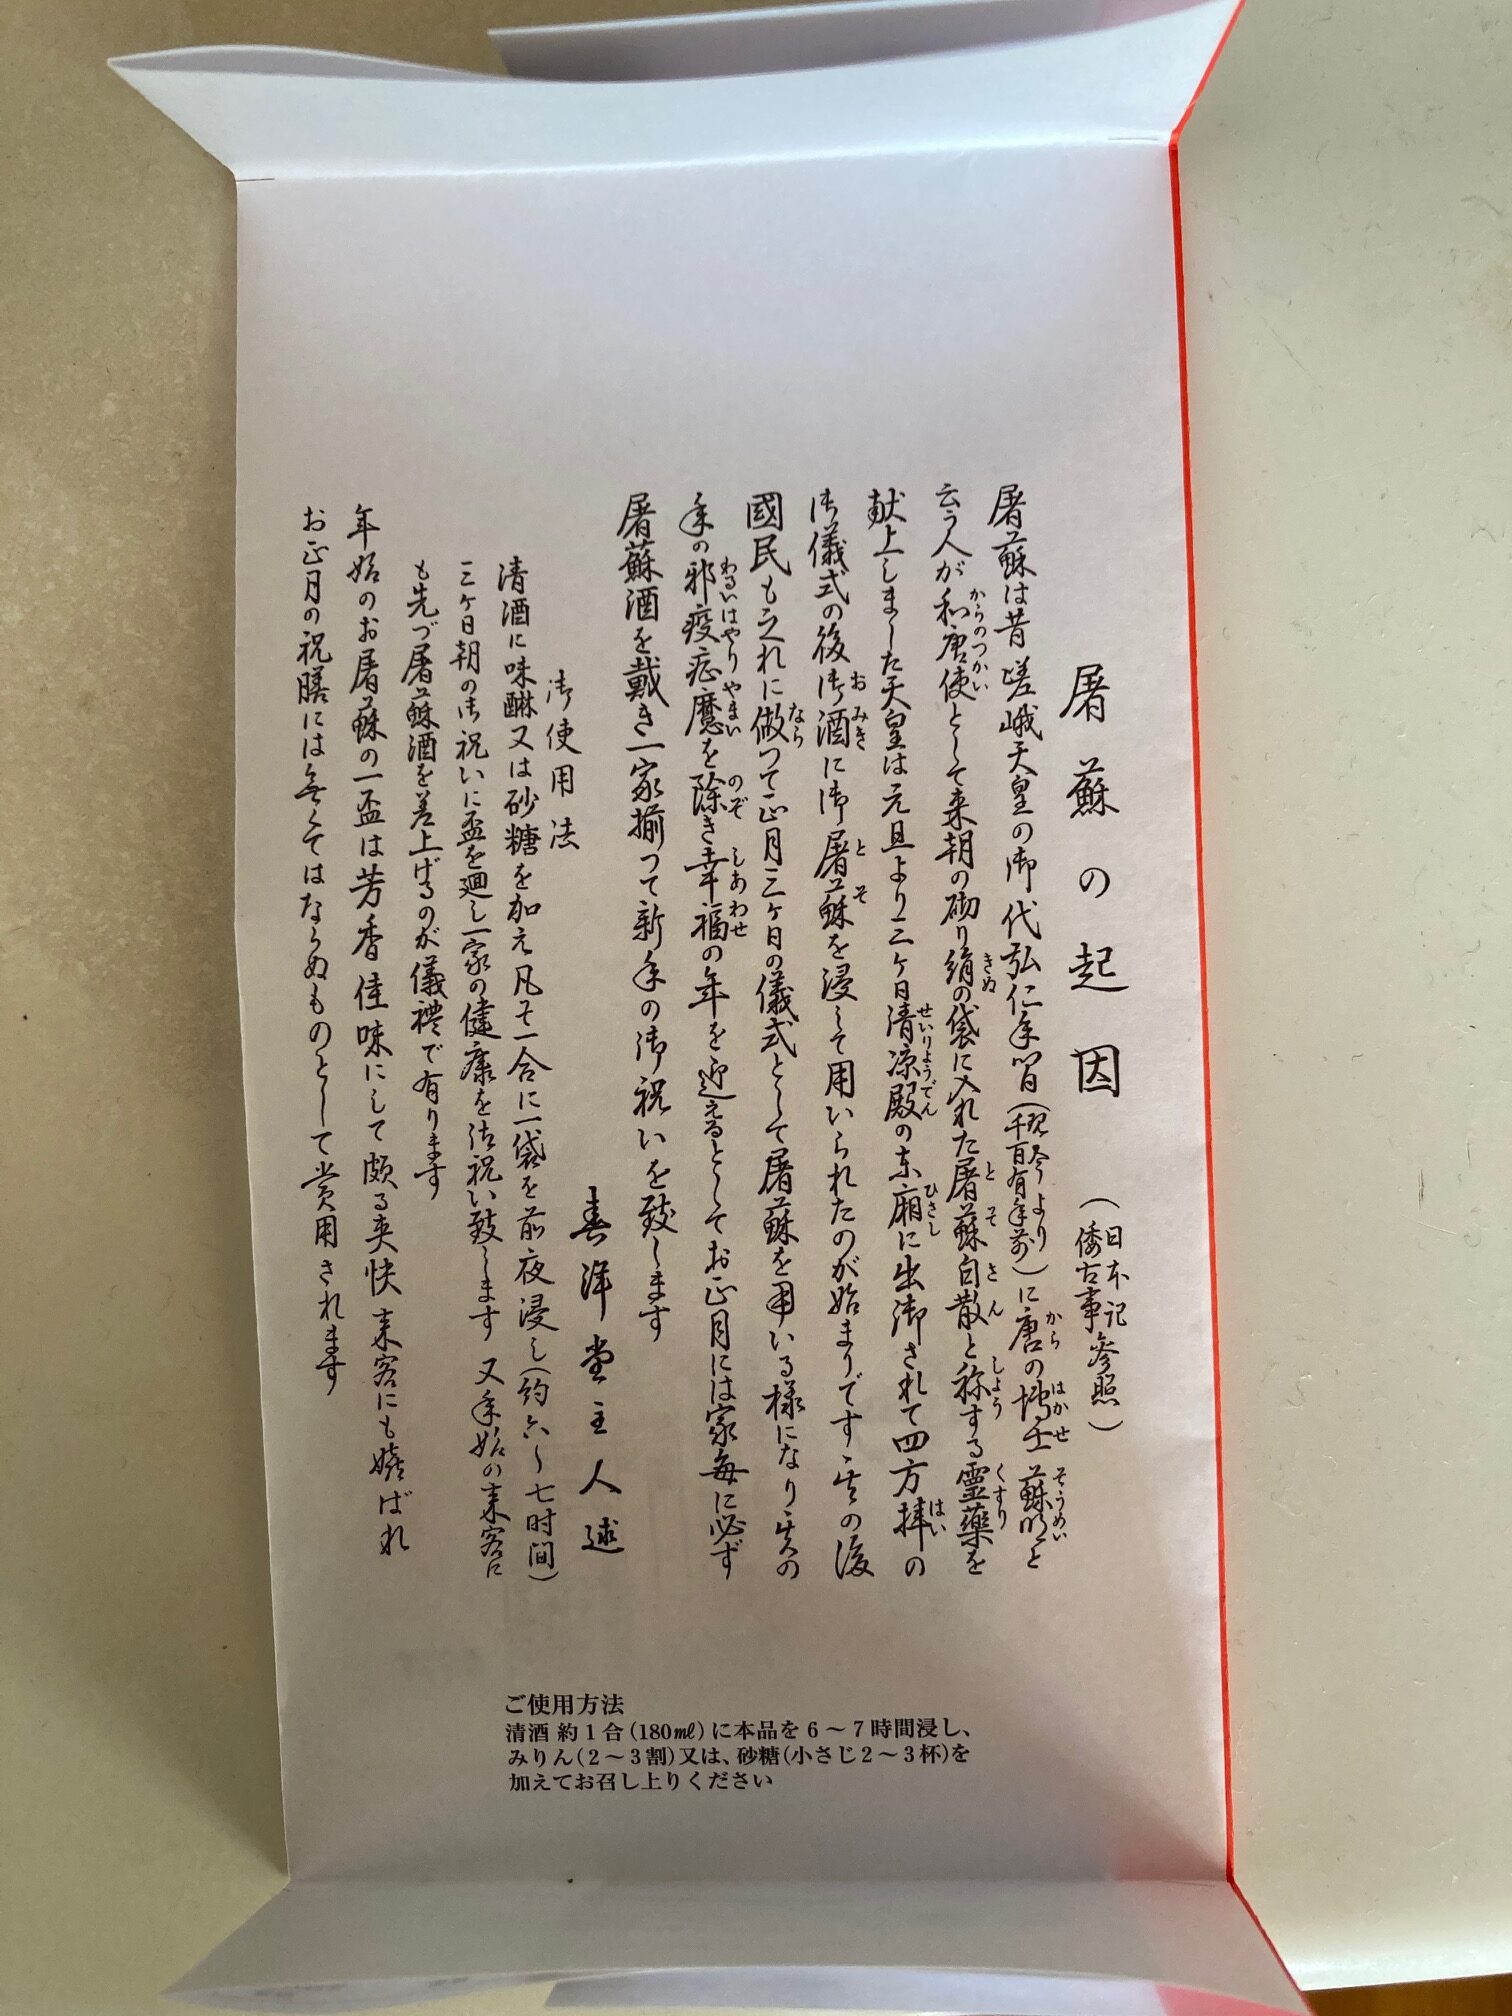 屠蘇の起因
(日本記
倭古事参照)
屠蘇は昔嵯峨天皇の御代弘仁年間(現今より千百有年前)に唐の博士蘇明と
云う人が和唐使として来朝の砌り絹の袋に入れた屠蘇白散と称する霊薬を
献上しました天皇は元旦より三ヶ日清涼殿の東廂に出御されて四方拝の
御儀式の後御酒に御屠蘇を浸して用いられたのが始まりです其の後
國民も之れに倣つて正月三ヶ日の儀式として屠蘇を用いる様になり其の
年の邪疫痣魔を除き幸福の年を迎えるとしてお正月には家毎に必ず
屠蘇酒を戴き一家揃つて新年の御祝いを致します
春洋堂主人述
御使用法
清酒に味醂又は砂糖を加え凡そ一合に一袋を前夜浸し(約六〜七时間)
三ヶ日朝の御祝いに盃を廻し一家の健康を御祝い致します又年始の来客に
も先づ屠蘇酒を差上げるのが儀禮で有ります
年始のお屠蘇の一盃は芳香佳味にして頗る爽快来客にも嬉ばれ
お正月の祝膳には無くてはならぬものとして賞用されます
ご使用方法
清酒 約1合(180㎖)に本品を6〜7時間浸し、
みりん(2〜3割)又は、砂糖(小さじ2〜3杯)を
加えてお召し上りください